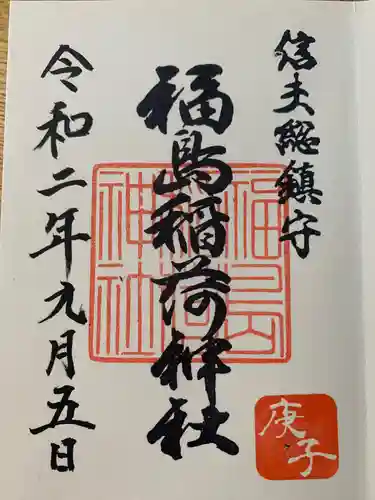 信夫総鎮守
福島稲荷神社
福島稲荷神社
令和二年九月五日
庚子